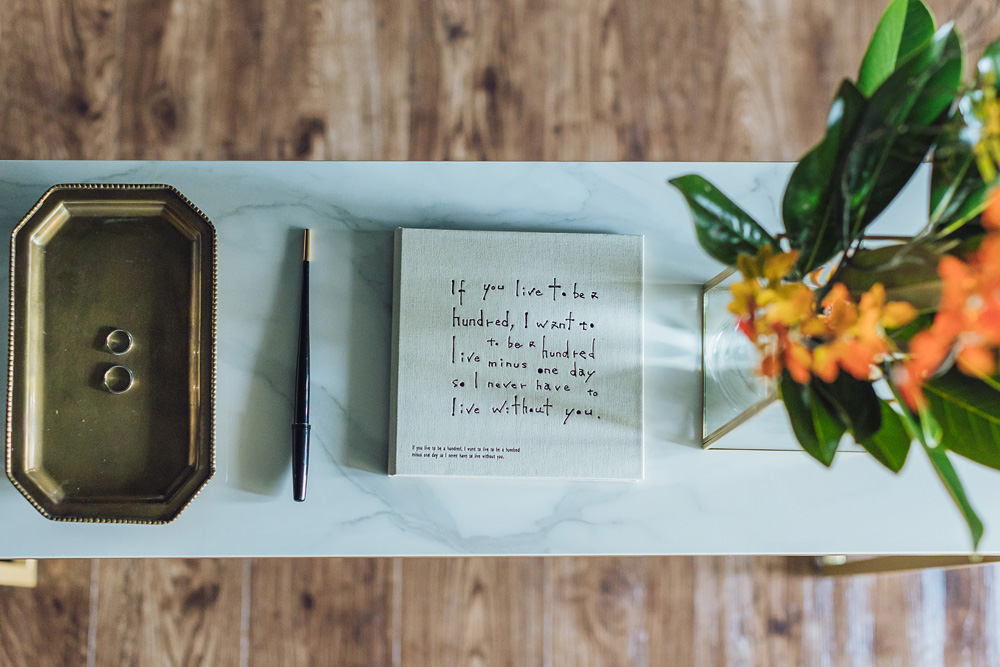 If you live to be a
hundred, I want to
live to be a hundred
minus one day
so I never have to
live without you.
If you live to be a hundred, I want to live to be a hundred
minus one day so I never have to live without you.